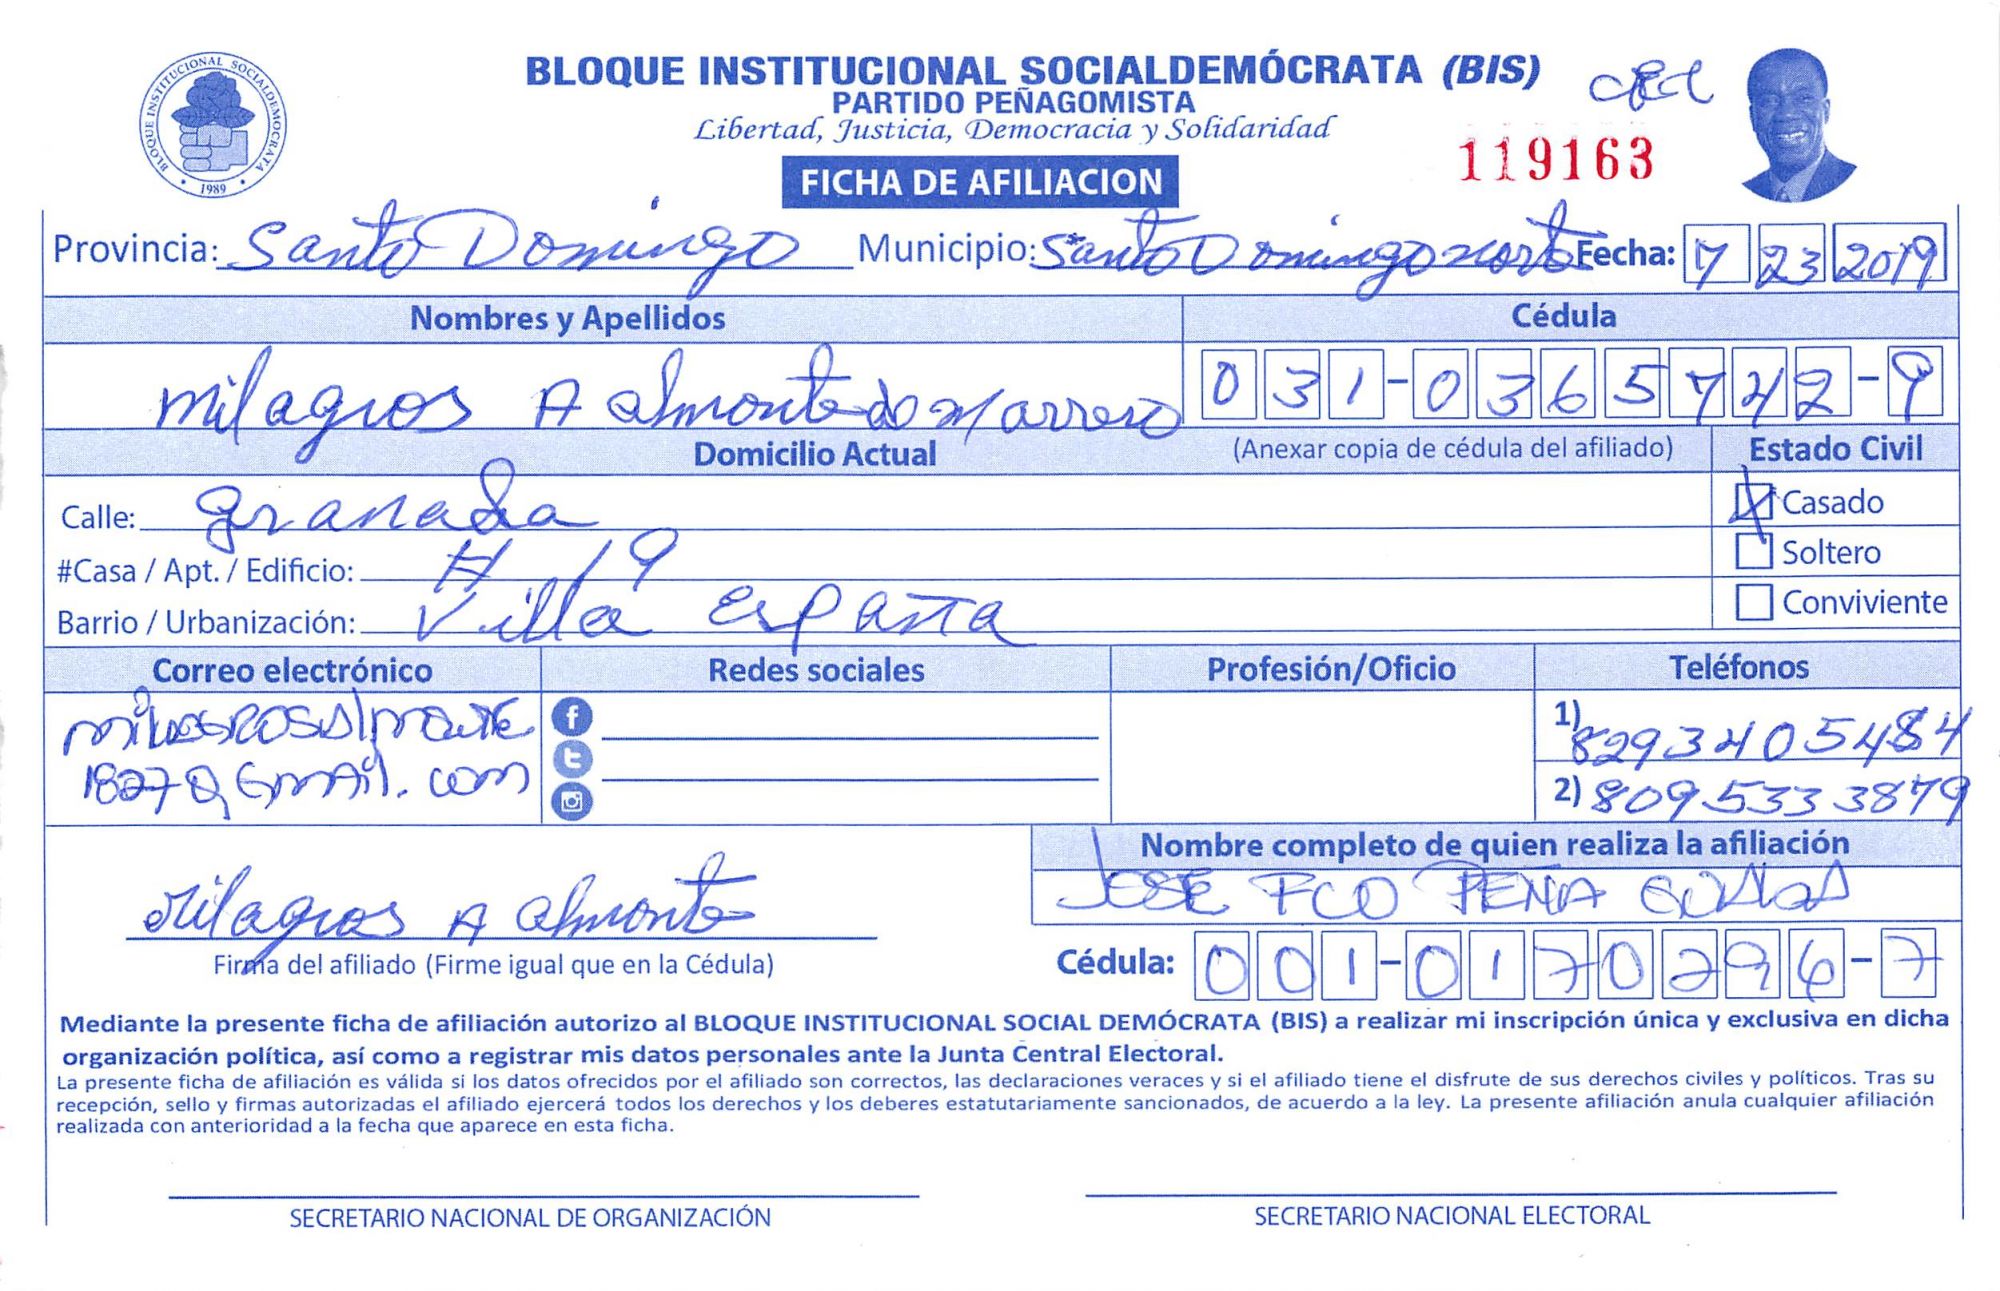 BLOQUE INSTITUCIONAL SOCIALDEMOCRATA
1989
BLOQUE INSTITUCIONAL SOCIALDEMÓCRATA (BIS)
PARTIDO PEÑAGOMISTA
Libertad, Justicia, Democracia y Solidaridad
119163
FICHA DE AFILIACION
Provincia: Santo Domingo Municipio: Santo Domingo norte Fecha: 7 23 2019
Nombres y Apellidos Cédula
Milagros A Almonte de Marrero 031-0365742-9
Domicilio Actual (Anexar copia de cédula del afiliado) Estado Civil
Calle: Granada Casado
#Casa / Apt. / Edificio: # 19 Soltero
Barrio / Urbanización: Villa España Conviviente
Correo electrónico Redes sociales Profesión/Oficio Teléfonos
milagrosalmonte 1) 8293405484
1827@gmail.com 2) 8095333879
Nombre completo de quien realiza la afiliación
Milagros A Almonte JOSE FCO PEÑA
Firma del afiliado (Firme igual que en la Cédula) Cédula: 001-0170296-7
Mediante la presente ficha de afiliación autorizo al BLOQUE INSTITUCIONAL SOCIAL DEMÓCRATA (BIS) a realizar mi inscripción única y exclusiva en dicha
organización política, así como a registrar mis datos personales ante la Junta Central Electoral.
La presente ficha de afiliación es válida si los datos ofrecidos por el afiliado son correctos, las declaraciones veraces y si el afiliado tiene el disfrute de sus derechos civiles y políticos. Tras su
recepción, sello y firmas autorizadas el afiliado ejercerá todos los derechos y los deberes estatutariamente sancionados, de acuerdo a la ley. La presente afiliación anula cualquier afiliación
realizada con anterioridad a la fecha que aparece en esta ficha.
SECRETARIO NACIONAL DE ORGANIZACIÓN SECRETARIO NACIONAL ELECTORAL